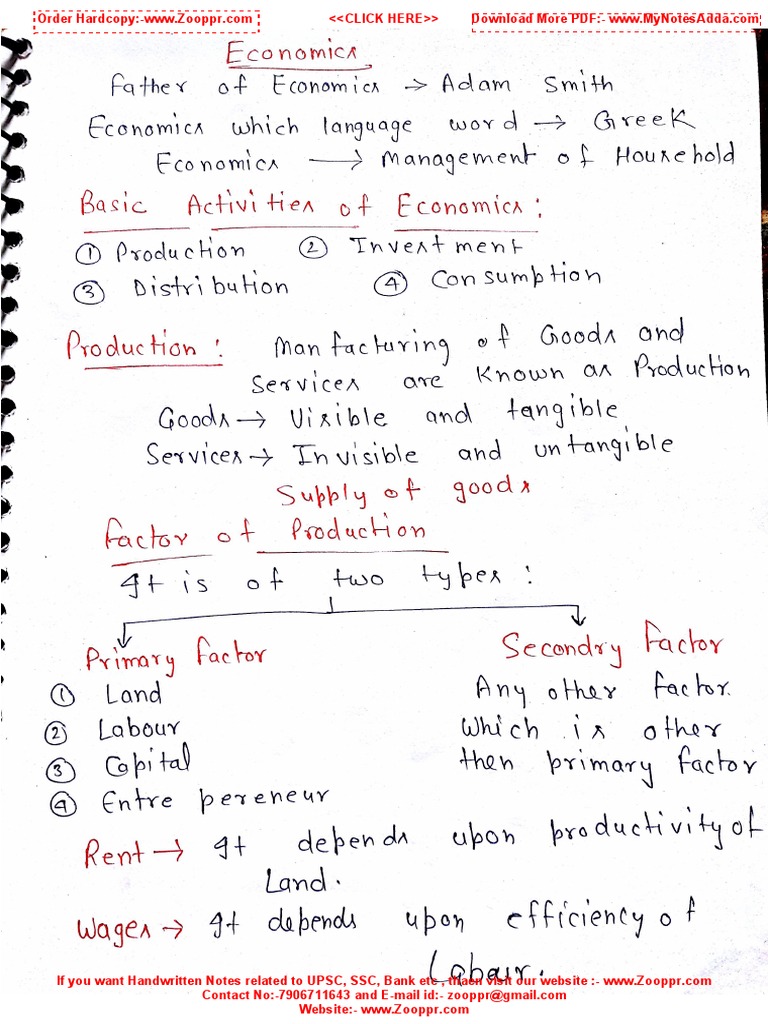 Order Hardcopy:-www.Zooppr.com <<CLICK HERE>> Download More PDF:- www.MyNotesAdda.com
Economics
Father of Economics → Adam Smith
Economics which language word → Greek
Economics → Management of Household
Basic Activities of Economics:
① Production ② Investment
③ Distribution ④ Consumption
Production: Manfacturing of Goods and
Services are known as Production
Goods → Visible and tangible
Services → Invisible and untangible
Supply of goods
Factor of Production
It is of two types:
Primary Factor Secondry Factor
① Land Any other factor.
② Labour Which is other
③ Capital then primary factor
④ Entre pereneur
Rent → It depends upon productivity of
Land.
Wages → It depends upon efficiency of
Labour.
If you want Handwritten Notes related to UPSC, SSC, Bank etc , thaen visit our website :- www.Zooppr.com
Contact No:-7906711643 and E-mail id:- zooppr@gmail.com
Website:- www.Zooppr.com